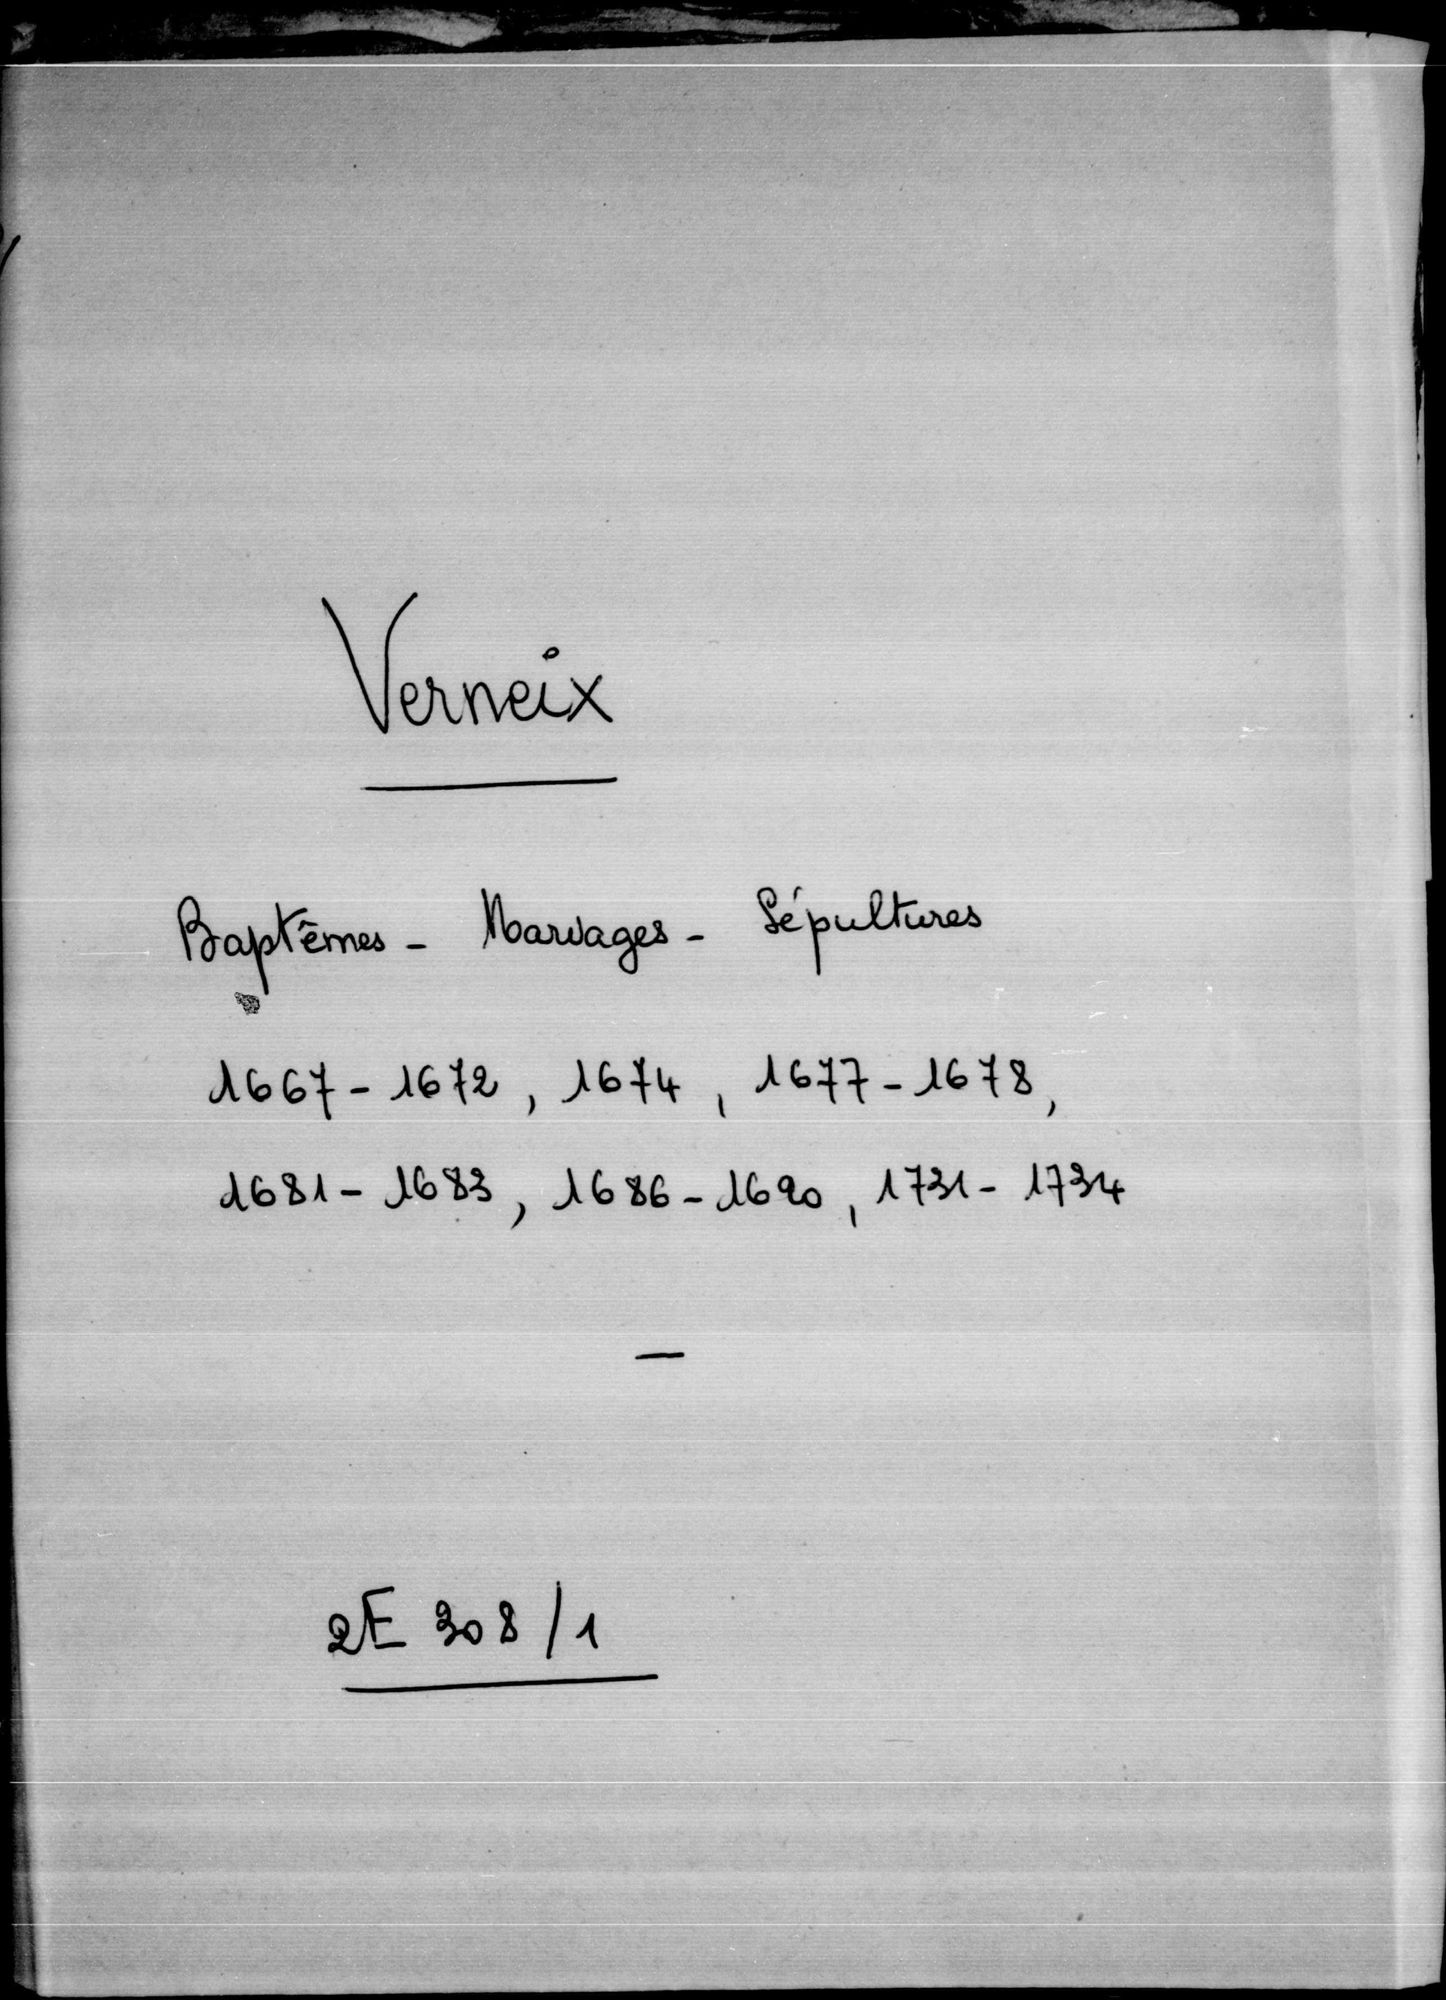 Verneix
Baptêmes - Mariages - Sépultures
1667 - 1672, 1674, 1677 - 1678,
1681 - 1683, 1686 - 1690, 1731 - 1734
—
2E 308/1